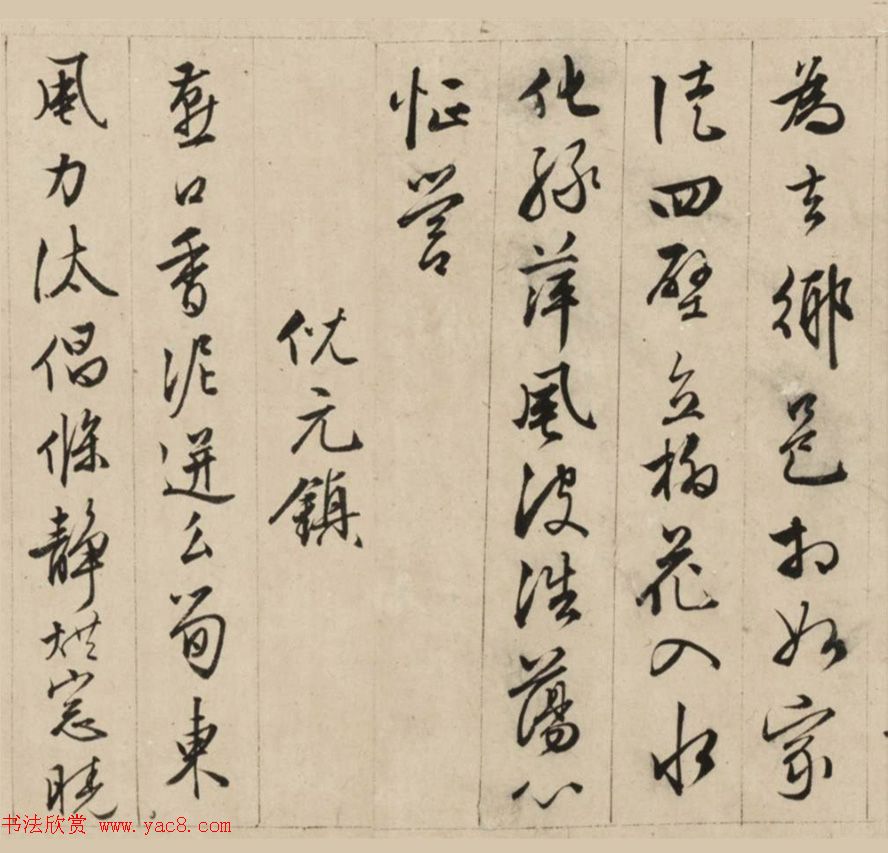 為去鄉邑相如家
徒四壁立柳花入水
化綠萍風波浩蕩心
怔營
倪元鎮
燕口香泥迸幺筍東
風力汰倡條靜烘窓曉
书法欣赏 www.yac8.com